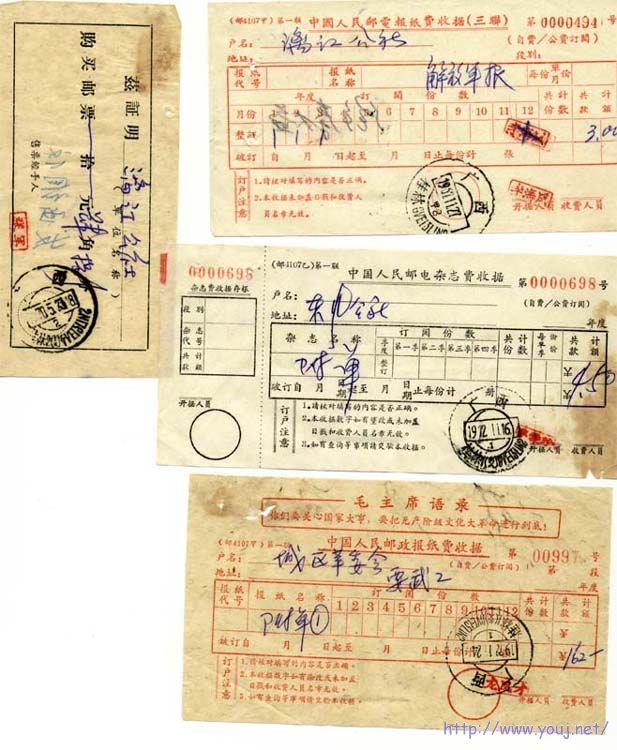 兹证明
漓江公社
(单位名称)
购买邮票 拾 元 角
售票经手人
(邮4107甲)第一联 中國人民邮電报纸费收据(三聯) 第 0000494 号
户名: 漓江公社 (自费/公费订阅)
地址:
报纸代号 报纸名称 解放军报 每份单月价
年度 订阅份数 共计份数 共计款额
月份 1 2 3 4 5 6 7 8 9 10 11 12
整订 3.00
破订 自 月 日起至 月 日止每份计 张
订户注意
1.请核对填写的内容是否正确。
2.本收据如未加盖日戳和收费人员名市无效。
开据人员 收费人员
广西
0000698
杂志费收据存根
报别
杂志代号
共计款额
开据人员
(邮4107乙)第一联 中国人民邮电杂志费收据 第 0000698 号
户名: (自费/公费订阅)
地址: 年度
杂志名称 订阅份数 共计份数 每季单价 共计款额
季度 第一季 第二季 第三季 第四季
整订
4.50
破订自 月 日期起至 月 日期止每份计 册
订户注意
1.请核对填写的内容是否正确。
2.本收据数字如有塗改或未加盖
日戳和收费人员名市无效。
3.如有查询等事项请交验本收据。
开据人员 收费人员
1972.11.16
毛主席语录
你们要关心国家大事,要把无产阶级文化大革命进行到底!
(邮4107甲)第一联 中国人民邮政报纸费收据 第 00997 号
户名: 城区革委会 (自费/公费订阅) 段
地址: 年度
报纸代号 报纸名称 订阅份数 共计份数 共计款额
1 2 3 4 5 6 7 8 9 10 11 12
①
破订自 月 日起至 月 日止每份计 张
订户注意
1.请核对填写的内容是否正确。
2.本收据数字如有塗改或未加盖
日戳和收费人员名市无效。
3.如有查询等事项请交验本收据。
开据人员 收费人员
http://www.youj.net/